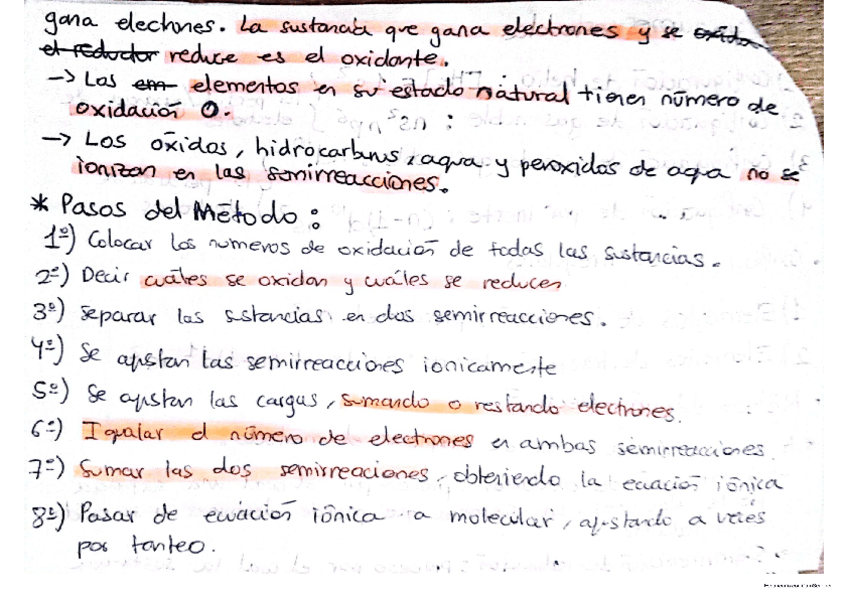 gana electrones. La sustancia que gana electrones y se oxida
el reductor reduce es el oxidante.
-> Los em elementos en su estado natural tienen número de
oxidación 0.
-> Los óxidos, hidrocarburos, agua y peroxidos de agua no se
ionizan en las semirreacciones.
* Pasos del Método:
1º) Colocar los numeros de oxidación de todas las sustancias.
2º) Decir cuáles se oxidan y cuáles se reducen
3º) Separar las sstancias en dos semirreacciones.
4º) Se ajustan las semirreacciones ionicamente
5º) Se ajustan las cargas, sumando o restando electrones.
6º) Igualar el número de electrones en ambas semirreacciones
7º) Sumar las dos semirreaciones, obteniendo la ecuación iónica
8º) Pasar de ecuación iónica a molecular, ajustando a veces
por tanteo.